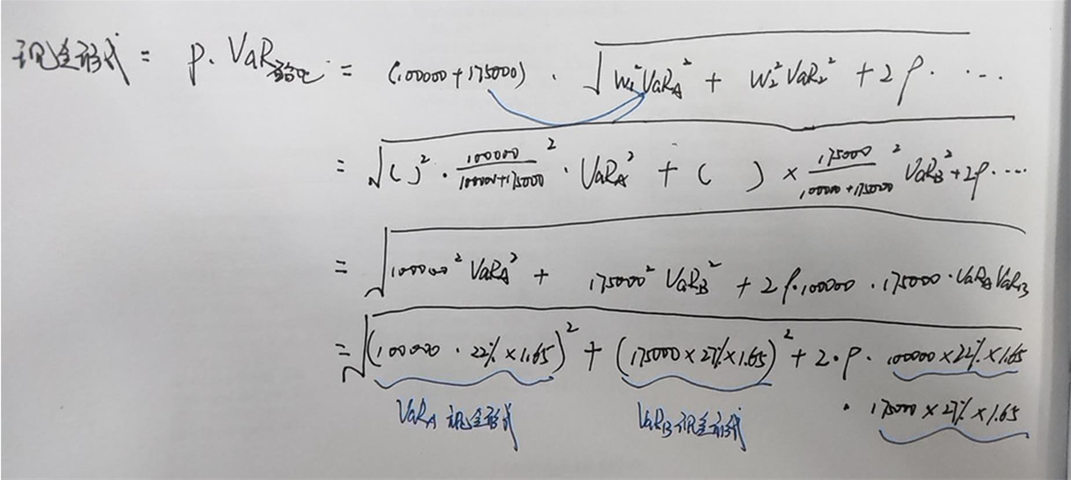 现金形式 = P · VaR组合 = (100000+175000) · √(W₁²VaR_A² + W₂²VaR₂² + 2ρ · ...
= √(( )² · 100000/(100000+175000)² · VaR_A² + ( ) × 175000/(100000+175000)² VaR_B² + 2ρ · ...
= √(100000² VaR_A² + 175000² VaR_B² + 2ρ·100000 · 175000 · VaR_A VaR_B
= √((100000 · 22% × 1.65)² + (175000 × 27% × 1.65)² + 2·ρ · 100000 × 22% × 1.65
· 175000 × 27% × 1.65
VaR_A 现金形式 VaR_B 现金形式